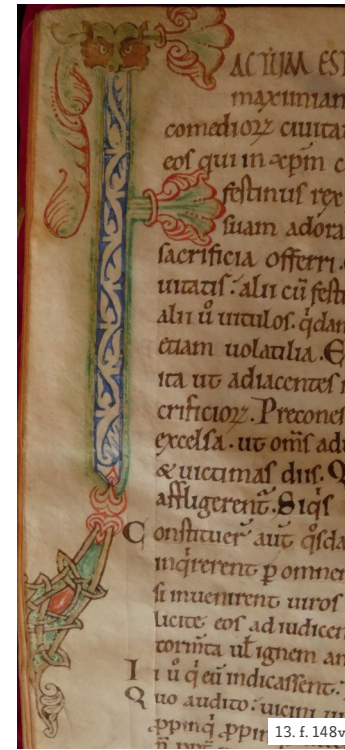 ACTUM EST
maximian
comedioꝝ ciuitat
eos qui in xp̄m c
festinus rex
suam adora
sacrificia offerri.
uitatis. alii cū festi
alii ů uitulos. q̇dam
etiam uolatilia. E
ita ut adiacentes
crificioꝝ. Precones
excelsa. ut om̄s ad
& uictimas diis. Q
affligerent̄. Siq̇s
Constituer̄ aut q̇sda
inq̇rerent ꝑ omnem
si inuenirent uiros
licite eos ad iudicem
torm̄ta ul̄ ignem an
Ii ů q̇ eū indicassent.
Quo audito. uicini
ꝓpinq̇ ꝓpin
13. f. 148v